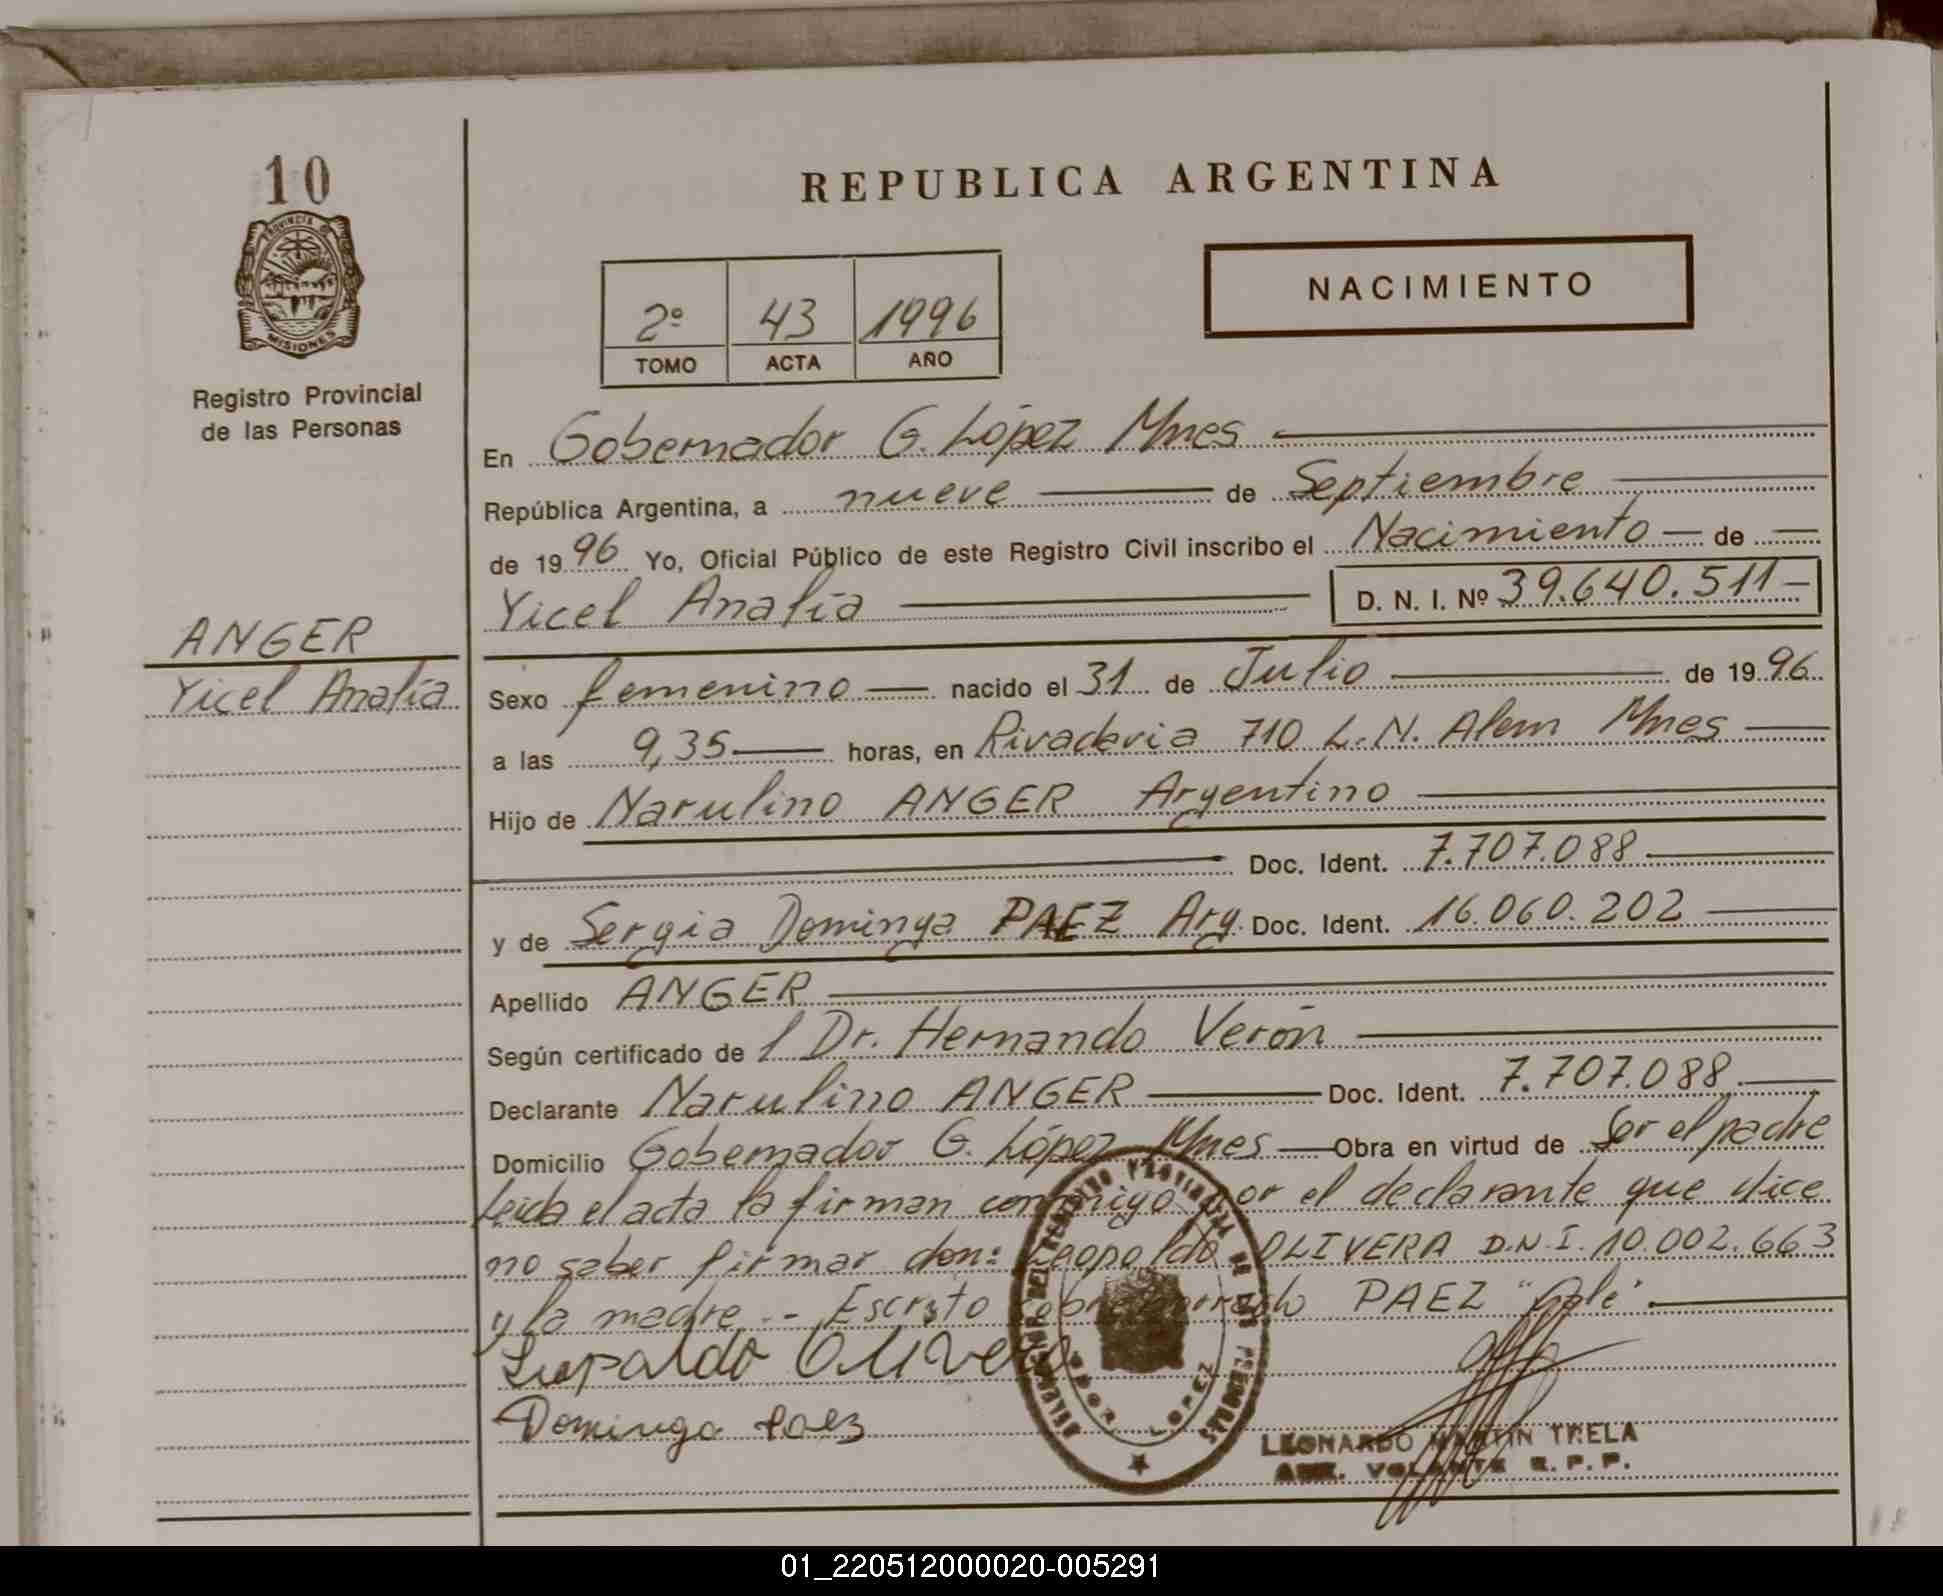 10
PROVINCIA DE
MISIONES
Registro Provincial
de las Personas
ANGER
Yicel Analía
REPUBLICA ARGENTINA
2º 43 1996
TOMO ACTA AÑO
NACIMIENTO
En Gobernador G. López Mnes
República Argentina, a nueve de Septiembre
de 1996 Yo, Oficial Público de este Registro Civil inscribo el Nacimiento de
Yicel Analía D. N. I. Nº 39.640.511
Sexo femenino nacido el 31 de Julio de 1996
a las 9,35 horas, en Rivadavia 710 L.N. Alem Mnes
Hijo de Narulino ANGER Argentino
Doc. Ident. 7.707.088
y de Sergia Dominga PAEZ Arg. Doc. Ident. 16.060.202
Apellido ANGER
Según certificado de l Dr. Hernando Verón
Declarante Narulino ANGER Doc. Ident. 7.707.088
Domicilio Gobernador G. López Mnes Obra en virtud de Ser el padre
Leida el acta la firman conmigo por el declarante que dice
no saber firmar don: Leopoldo OLIVERA D.N.I. 10.002.663
y la madre.- Escrito sobre borrado PAEZ "Vale".
Leopoldo Olivera
Dominga Paez
DEL REGISTRO PROVINCIAL DE LAS PERSONAS
GDOR. LOPEZ
LEONARDO MARTIN TRELA
VOLANTE R. P. P.
01_220512000020-005291